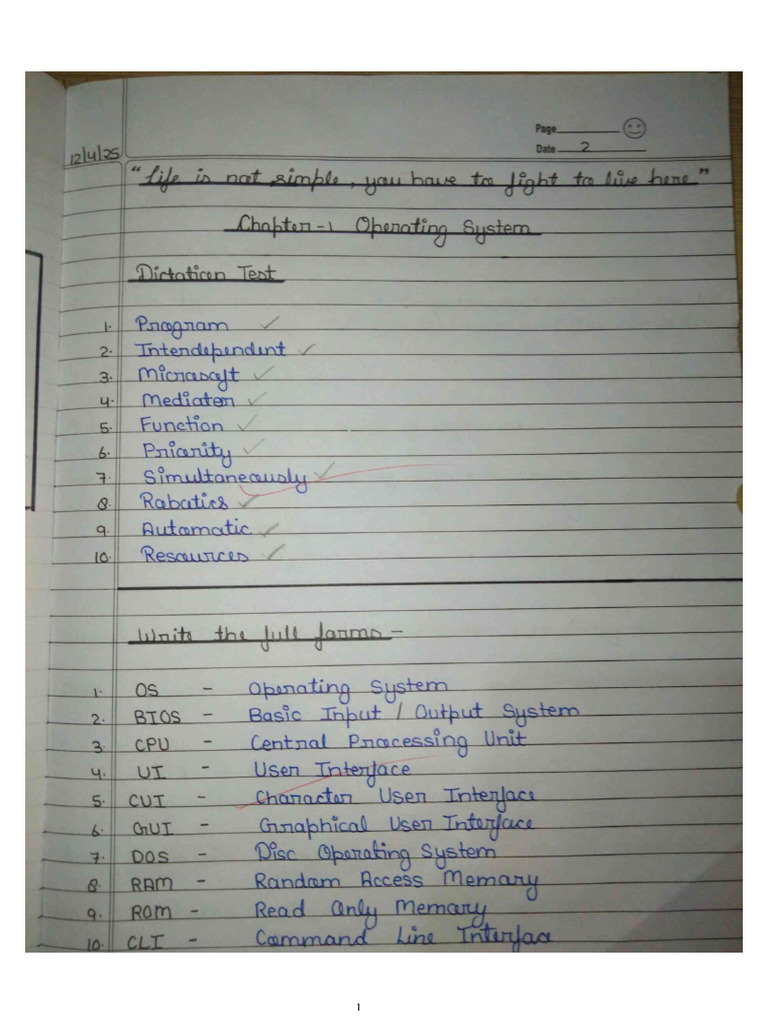 Page
Date 2
12/4/25
"Life is not simple, you have to fight to live here"
Chapter-1 Operating System
Dictation Test
1. Program ✓
2. Interdependent ✓
3. Microsoft ✓
4. Mediator ✓
5. Function ✓
6. Priority ✓
7. Simultaneously ✓
8. Robotics ✓
9. Automatic ✓
10. Resources ✓
Write the full forms -
1. OS - Operating System
2. BIOS - Basic Input / Output System
3. CPU - Central Processing Unit
4. UI - User Interface
5. CUI - Character User Interface
6. GUI - Graphical User Interface
7. DOS - Disc Operating System
8. RAM - Random Access Memory
9. ROM - Read Only Memory
10. CLI - Command Line Interface
1